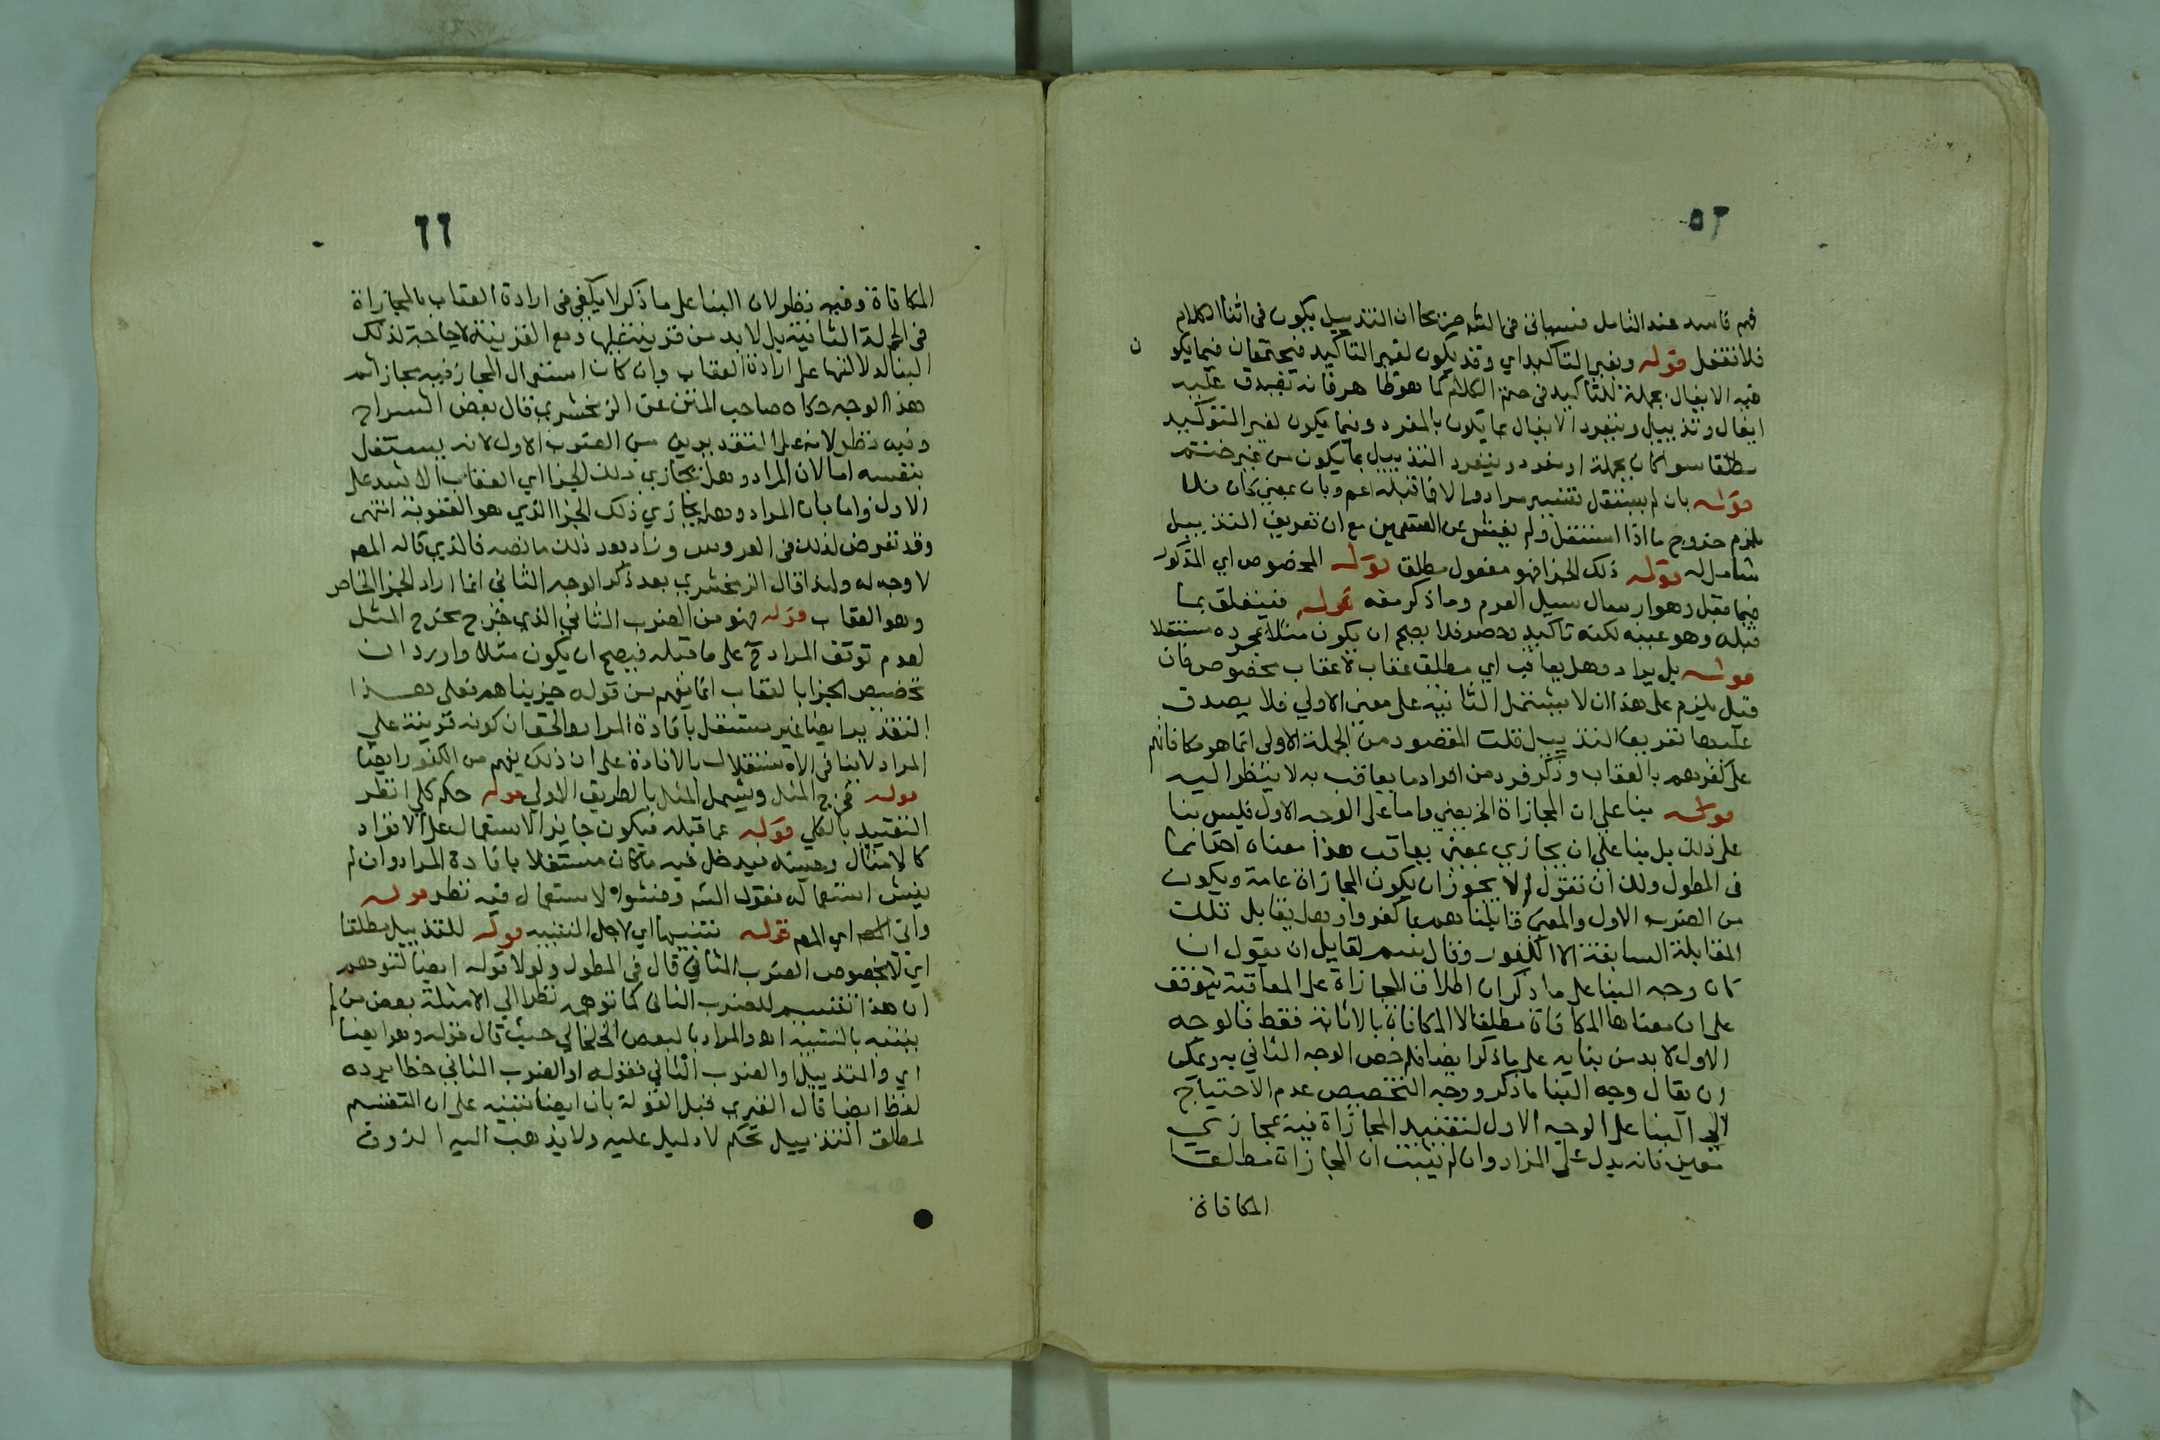 ٥٦
فهم فاسد عند التامل فسيهاتي في الشم صريحا ان التذييل يكون في اثنا الكلام
فلا تغفل قوله ولغير التاكيد اي وقد يكون لغير التاكيد فيجتمعان فيما يكو ن
فيه الايغال بجملة للتاكيد في ختم الكلام كما هو ظاهر فانه يصدق عليه
ايغال وتذييل وينفرد الايغال بما يكون بالمفرد وفيما يكون لغير التوكيد
مطلقا سوا كان بجملة او مفرد وينفرد التذييل بما يكون من غير ختم
قوله بان لم يستقل تفسير مراد والا فما قبله اعم وبان بمعنى كان فلا
يلزم خروج ما اذا استقل ولم يفش عن القسمين مع ان تعريف التذييل
شامل له قوله ذلك الجزا فهو مفعول مطلق قوله المخصوص اي المذكور
فيما قبل وهو ارسال سيل العرم وما ذكر معه قوله فيتعلق بما
قبله وهو عينه لكنه تاكيد وحصر فلا يصح ان يكون مثلا بمجرده مستقلا
قوله بل يراد وهل يعاقب اي مطلق عقاب لا عقاب مخصوص فان
قيل يلزم على هذا ان لا يشتمل الثانية على معنى الاولي فلا يصدق
عليها تعريف التذييل قلت المقصود من الجملة الاولي انما هو مكافاتهم
على كفرهم بالعقاب وذكر فرد من افراد ما يعاقب به لا ينظر اليه
قوله بنا على ان المجازاة الخ يعني واما على الوجه الاول فليس بنا
على ذلك بل بنا على ان يجازي بمعنى يعاقب هذا معناه
في المطول ولك ان تقول لم لا يجوز ان يكون المجازاة عامة ويكون
من الضرب الاول والمعنى قابلناهم بما كفروا وهل يقابل تلك
المقابلة السابقة الا الكفور وقال بسم لقايل ان يقول ان
كان وجه البنا على ما ذكر ان اطلاق المجازاة على المعاقبة يتوقف
على ان معناها المكافاة مطلقا لا المكافاة بالاثابة فقط فالوجه
الاول لا بد من بنايه على ما ذكر ايضا فلم خص الوجه الثاني به ويمكن
ان يقال وجه البنا ما ذكر ووجه التخصيص عدم الاحتياج
الي البنا على الوجه الاول لتقييد المجازاة فيه بمجازي
معين فانه يدل على المراد وان لم يثبت ان المجازاة مطلقا
المكافاة
٦٦
المكافاة وفيه نظر لان البنا على ما ذكر لا يكفي في ارادة العقاب بالمجازاة
في الجملة الثانية بل لا بد من قرينة عليها ومع القرينة لا حاجة لذلك
البنا لدلالتها على ارادة العقاب وان كان استعمال المجاز فيه مجازا ثم
هذا الوجه حكاه صاحب المتن عن الزمخشري قال بعض الشراح
وفيه نظر لانه على التقديرين من الضرب الاول لانه يستقل
بنفسه اما لان المراد وهل يجازي ذلك الجزا اي العقاب الاشد على
الاول واما بان المراد وهل يجازي ذلك الجزا الذي هو العقوبة انتهى
وقد تعرض لذلك في العروس وزاد بعد ذلك ما نصه فالذي قاله المص
لا وجه له ولذا قال الزمخشري بعد ذكر الوجه الثاني انما اراد الجزا الخاص
وهو العقاب قوله فهو من الضرب الثاني الذي خرج مخرج المثل
لعدم توقف المراد ح على ما قبله فيصح ان يكون مثلا واورد ان
تخصيص الجزا بالعقاب انما يفهم من قوله جزيناهم فعلى هذا
التقدير ايضا غير مستقل بافادة المراد والحق ان كونه قرينة علي
المراد لا ينافي الاستقلال بالافادة على ان ذلك يفهم من الكفور ايضا
قوله مخرج المثل ويشمل المثل بالطريق الاولي قوله حكم كلي انظر
التقييد بالكلي قوله عما قبله فيكون جايز الاستعمال على الانفراد
كالامثال وحينئذ فيدخل فيه ما كان مستقلا بافادة المراد وان لم
يفش استعماله فقول الشم وفشو الاستعمال فيه نظر قوله
واتي اي المص قوله تنبيها اي لاجل التنبيه قوله للتذييل مطلقا
اي لا بخصوص الضرب الثاني قال في المطول ولولا قوله ايضا لتوهم
ان هذا تقسيم للضرب الثاني كما توهم نظرا الي الامثلة بعض من لم
يتنبه بالتنبيه اه والمراد بالبعض الخلخالي حيث قال قوله وهو ايضا
اي والتذييل او الضرب الثاني فقوله او الضرب الثاني خطا يرده
لفظ ايضا قال الفنري قبل القولة بان ايضا تنبيه على ان التقسيم
لمطلق التذييل تحكم لا دليل عليه ولا يذهب اليه الذوق